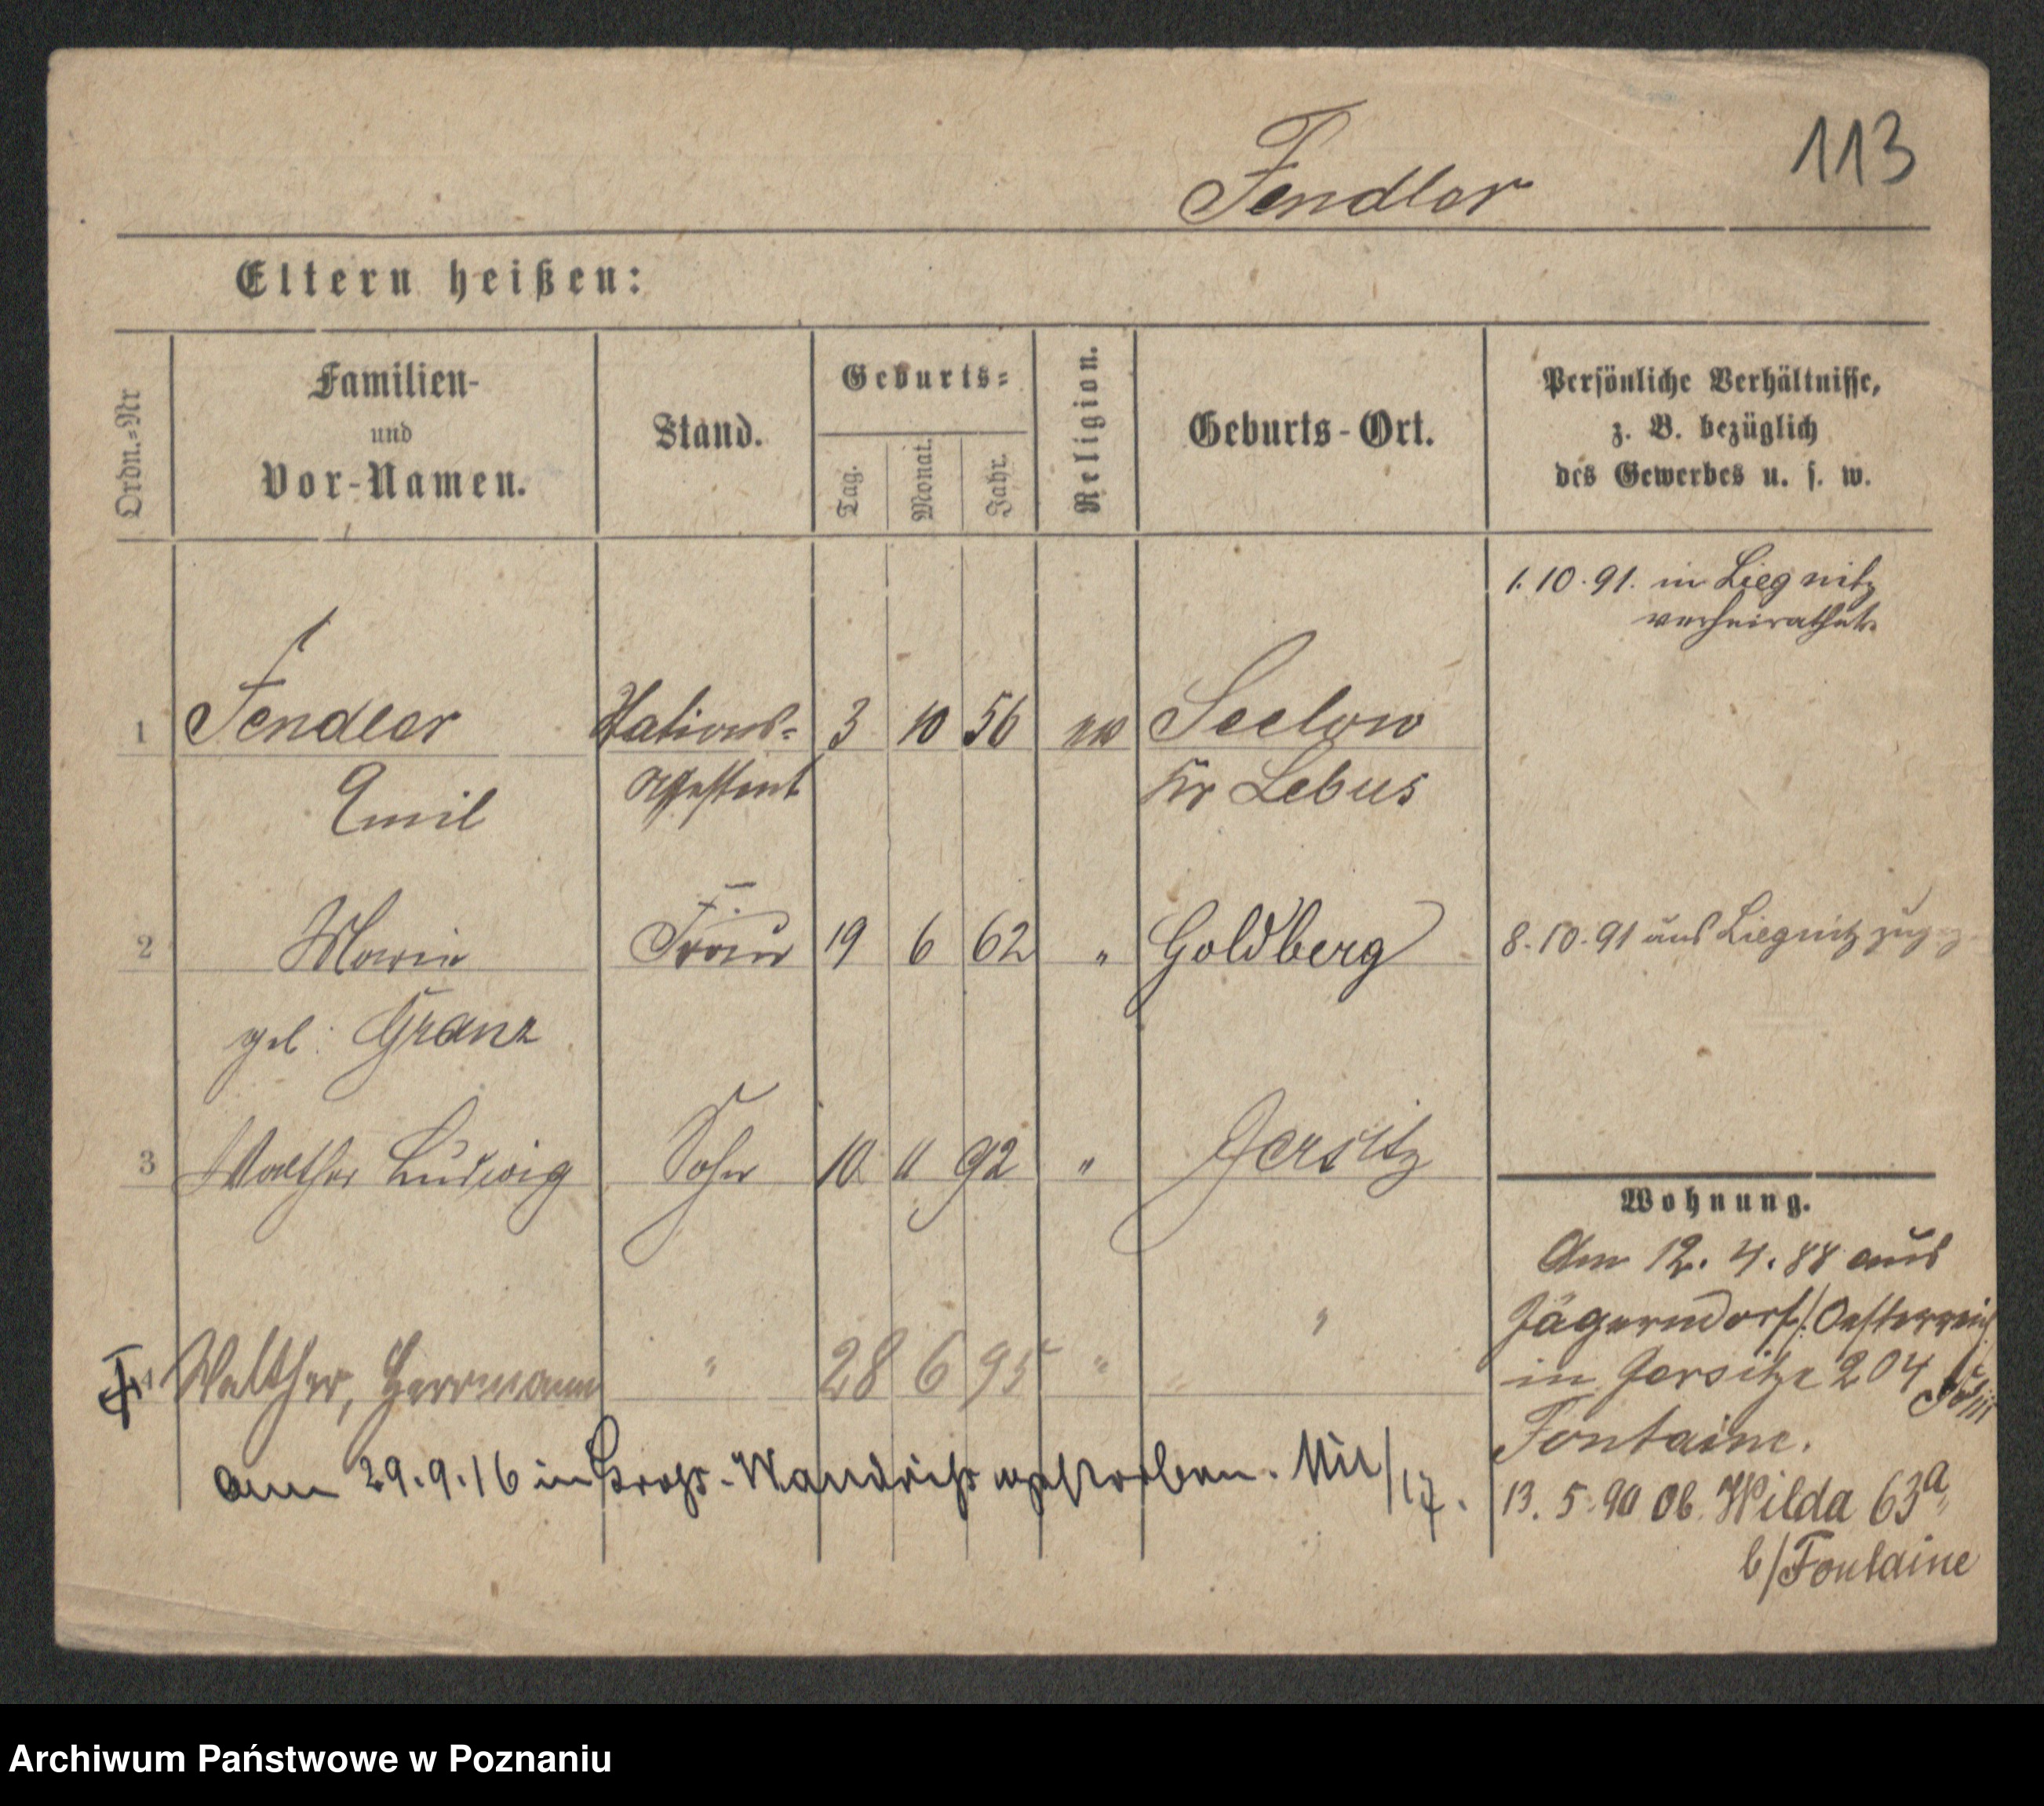 113
Fendler
Eltern heißen:
Ordn.=Nr
Familien-
und
Vor-Namen.
Stand.
Geburts=
Tag.
Monat.
Jahr.
Religion.
Geburts-Ort.
Persönliche Verhältnisse,
z. B. bezüglich
des Gewerbes u. s. w.
1.10.91. in Liegnitz
verheirathet.
1 Fendler Stations= 3 10 56 ev Seelow
Emil Assistent Kr Lebus
2 Marie Frau 19 6 62 " Goldberg 8.10.91 aus Liegnitz zugez
geb: Granz
3 Walther Ludwig Sohn 10 11 92 " Jersitz
4 Walther, Herrmann " 28 6 95 " "
am 29.9.16 in Gross-Wandriss gestorben. /17.
Wohnung.
Am 12.4.88 aus
Jägerndorf/: Oesterreich
in Jersitz 204
Fontaine.
13.5.90 Ob. Wilda 63a
b/Fontaine
Archiwum Państwowe w Poznaniu